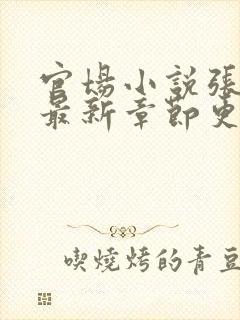 官場小說張
最新章節更
喫燒烤的青豆